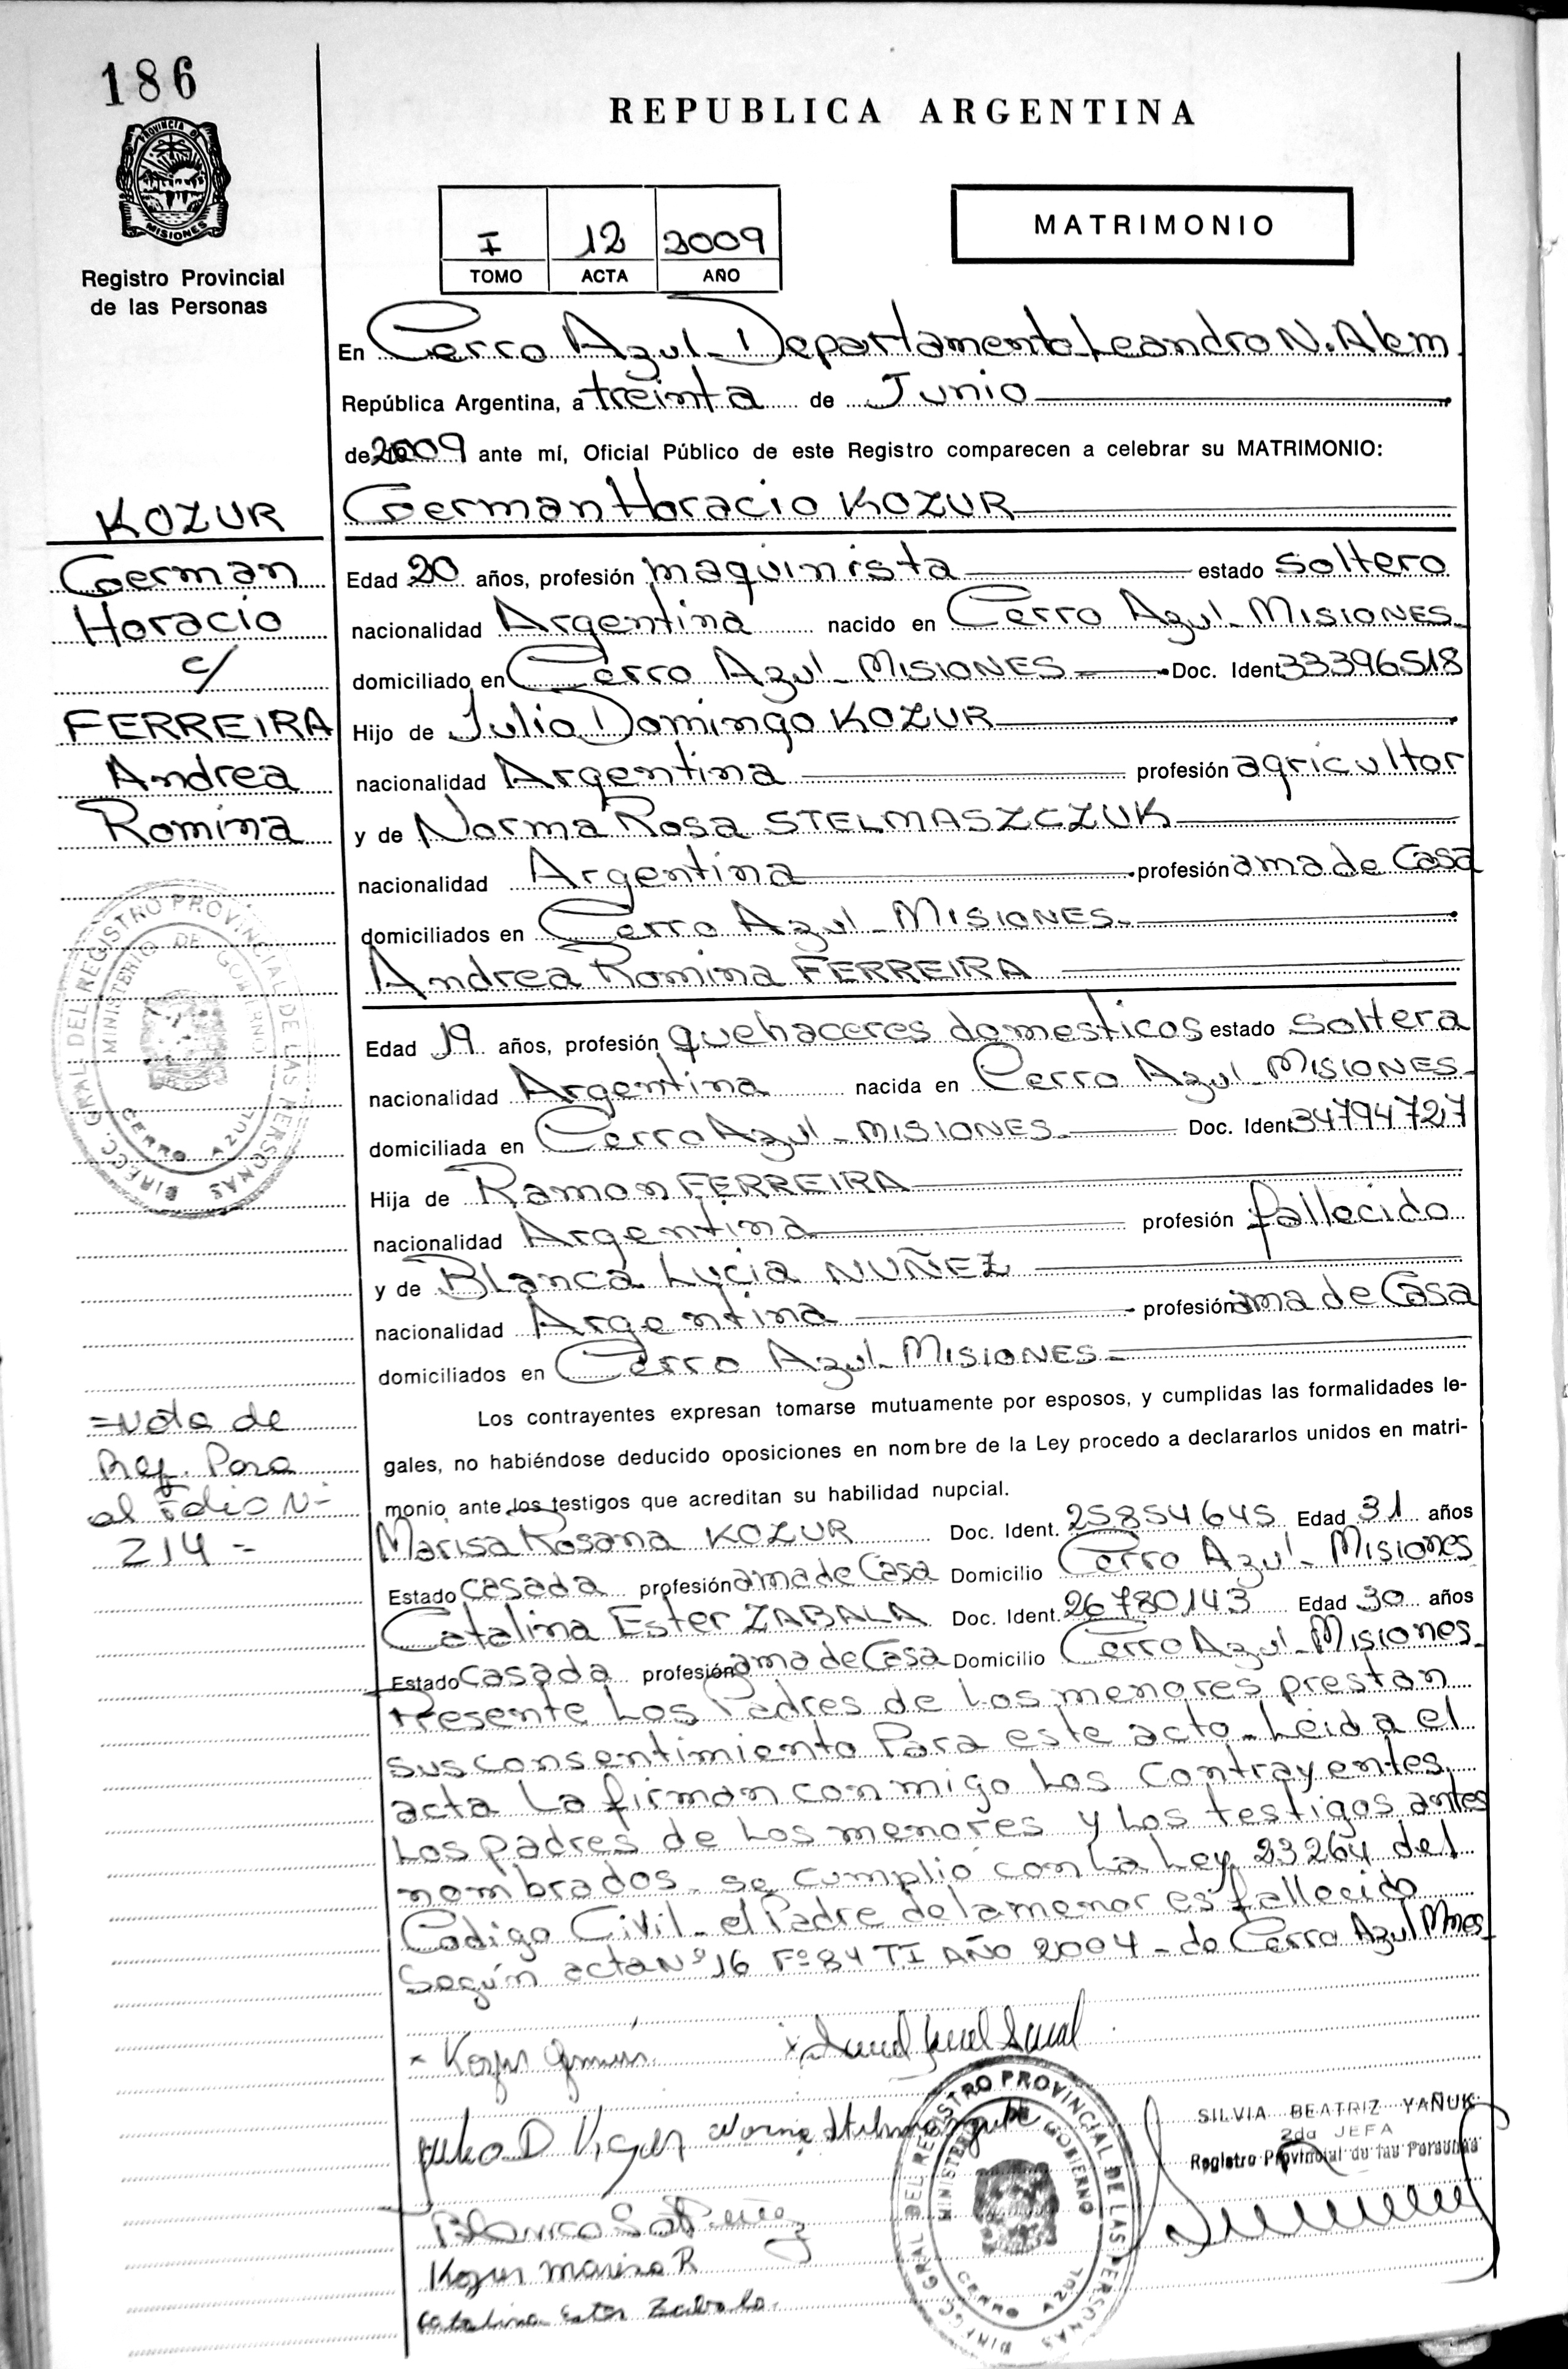 186
REPUBLICA ARGENTINA
PROVINCIA DE
MISIONES
Registro Provincial
de las Personas
I 12 2009
TOMO ACTA AÑO
MATRIMONIO
En Cerro Azul - Departamento Leandro N. Alem
República Argentina, a treinta de Junio
de 2009 ante mí, Oficial Público de este Registro comparecen a celebrar su MATRIMONIO:
German Horacio KOZUR
KOZUR
German
Horacio
c/
FERREIRA
Andrea
Romina
Edad 20 años, profesión maquinista estado soltero
nacionalidad Argentina nacido en Cerro Azul - MISIONES
domiciliado en Cerro Azul - MISIONES - Doc. Ident 33396518
Hijo de Julio Domingo KOZUR
nacionalidad Argentina profesión agricultor
y de Norma Rosa STELMASZCZUK
nacionalidad Argentina profesión ama de Casa
domiciliados en Cerro Azul - MISIONES -
Andrea Romina FERREIRA
Edad 19 años, profesión quehaceres domesticos estado Soltera
nacionalidad Argentina nacida en Cerro Azul - MISIONES -
domiciliada en Cerro Azul - MISIONES - Doc. Ident 34794727
Hija de Ramon FERREIRA
nacionalidad Argentina profesión fallecido
y de Blanca Lucia NUÑEZ
nacionalidad Argentina profesión ama de Casa
domiciliados en Cerro Azul - MISIONES -
DIRECC. GRAL. DEL REGISTRO PROVINCIAL DE LAS PERSONAS
MINISTERIO DE GOBIERNO
CERRO AZUL
= Nota de
Ref. Pasa
al Folio Nº
214 =
Los contrayentes expresan tomarse mutuamente por esposos, y cumplidas las formalidades le-
gales, no habiéndose deducido oposiciones en nombre de la Ley procedo a declararlos unidos en matri-
monio ante los testigos que acreditan su habilidad nupcial.
Marisa Rosana KOZUR Doc. Ident. 25854645 Edad 31 años
Estado casada profesión ama de Casa Domicilio Cerro Azul - Misiones
Catalina Ester ZABALA Doc. Ident. 26780143 Edad 30 años
Estado Casada profesión ama de Casa Domicilio Cerro Azul - Misiones -
Presente Los Padres de Los menores prestan
sus consentimiento Para este acto - Leida el
acta La firman conmigo Los Contrayentes,
Los padres de Los menores y Los testigos antes
nombrados - se cumplió con La Ley 23264 del
Codigo Civil - el Padre de la menor es fallecido
Según acta Nº 16 Fº 84 TI AÑO 2004 - de Cerro Azul Mnes -
Kozur German
Julio D Kozur Norma Stelmaszczuk
SILVIA BEATRIZ YAÑUK
2da JEFA
Registro Provincial de las Personas
DIRECC. GRAL. DEL REGISTRO PROVINCIAL DE LAS PERSONAS
MINISTERIO DE GOBIERNO
CERRO AZUL
Kozur Marisa R
Catalina Ester Zabala